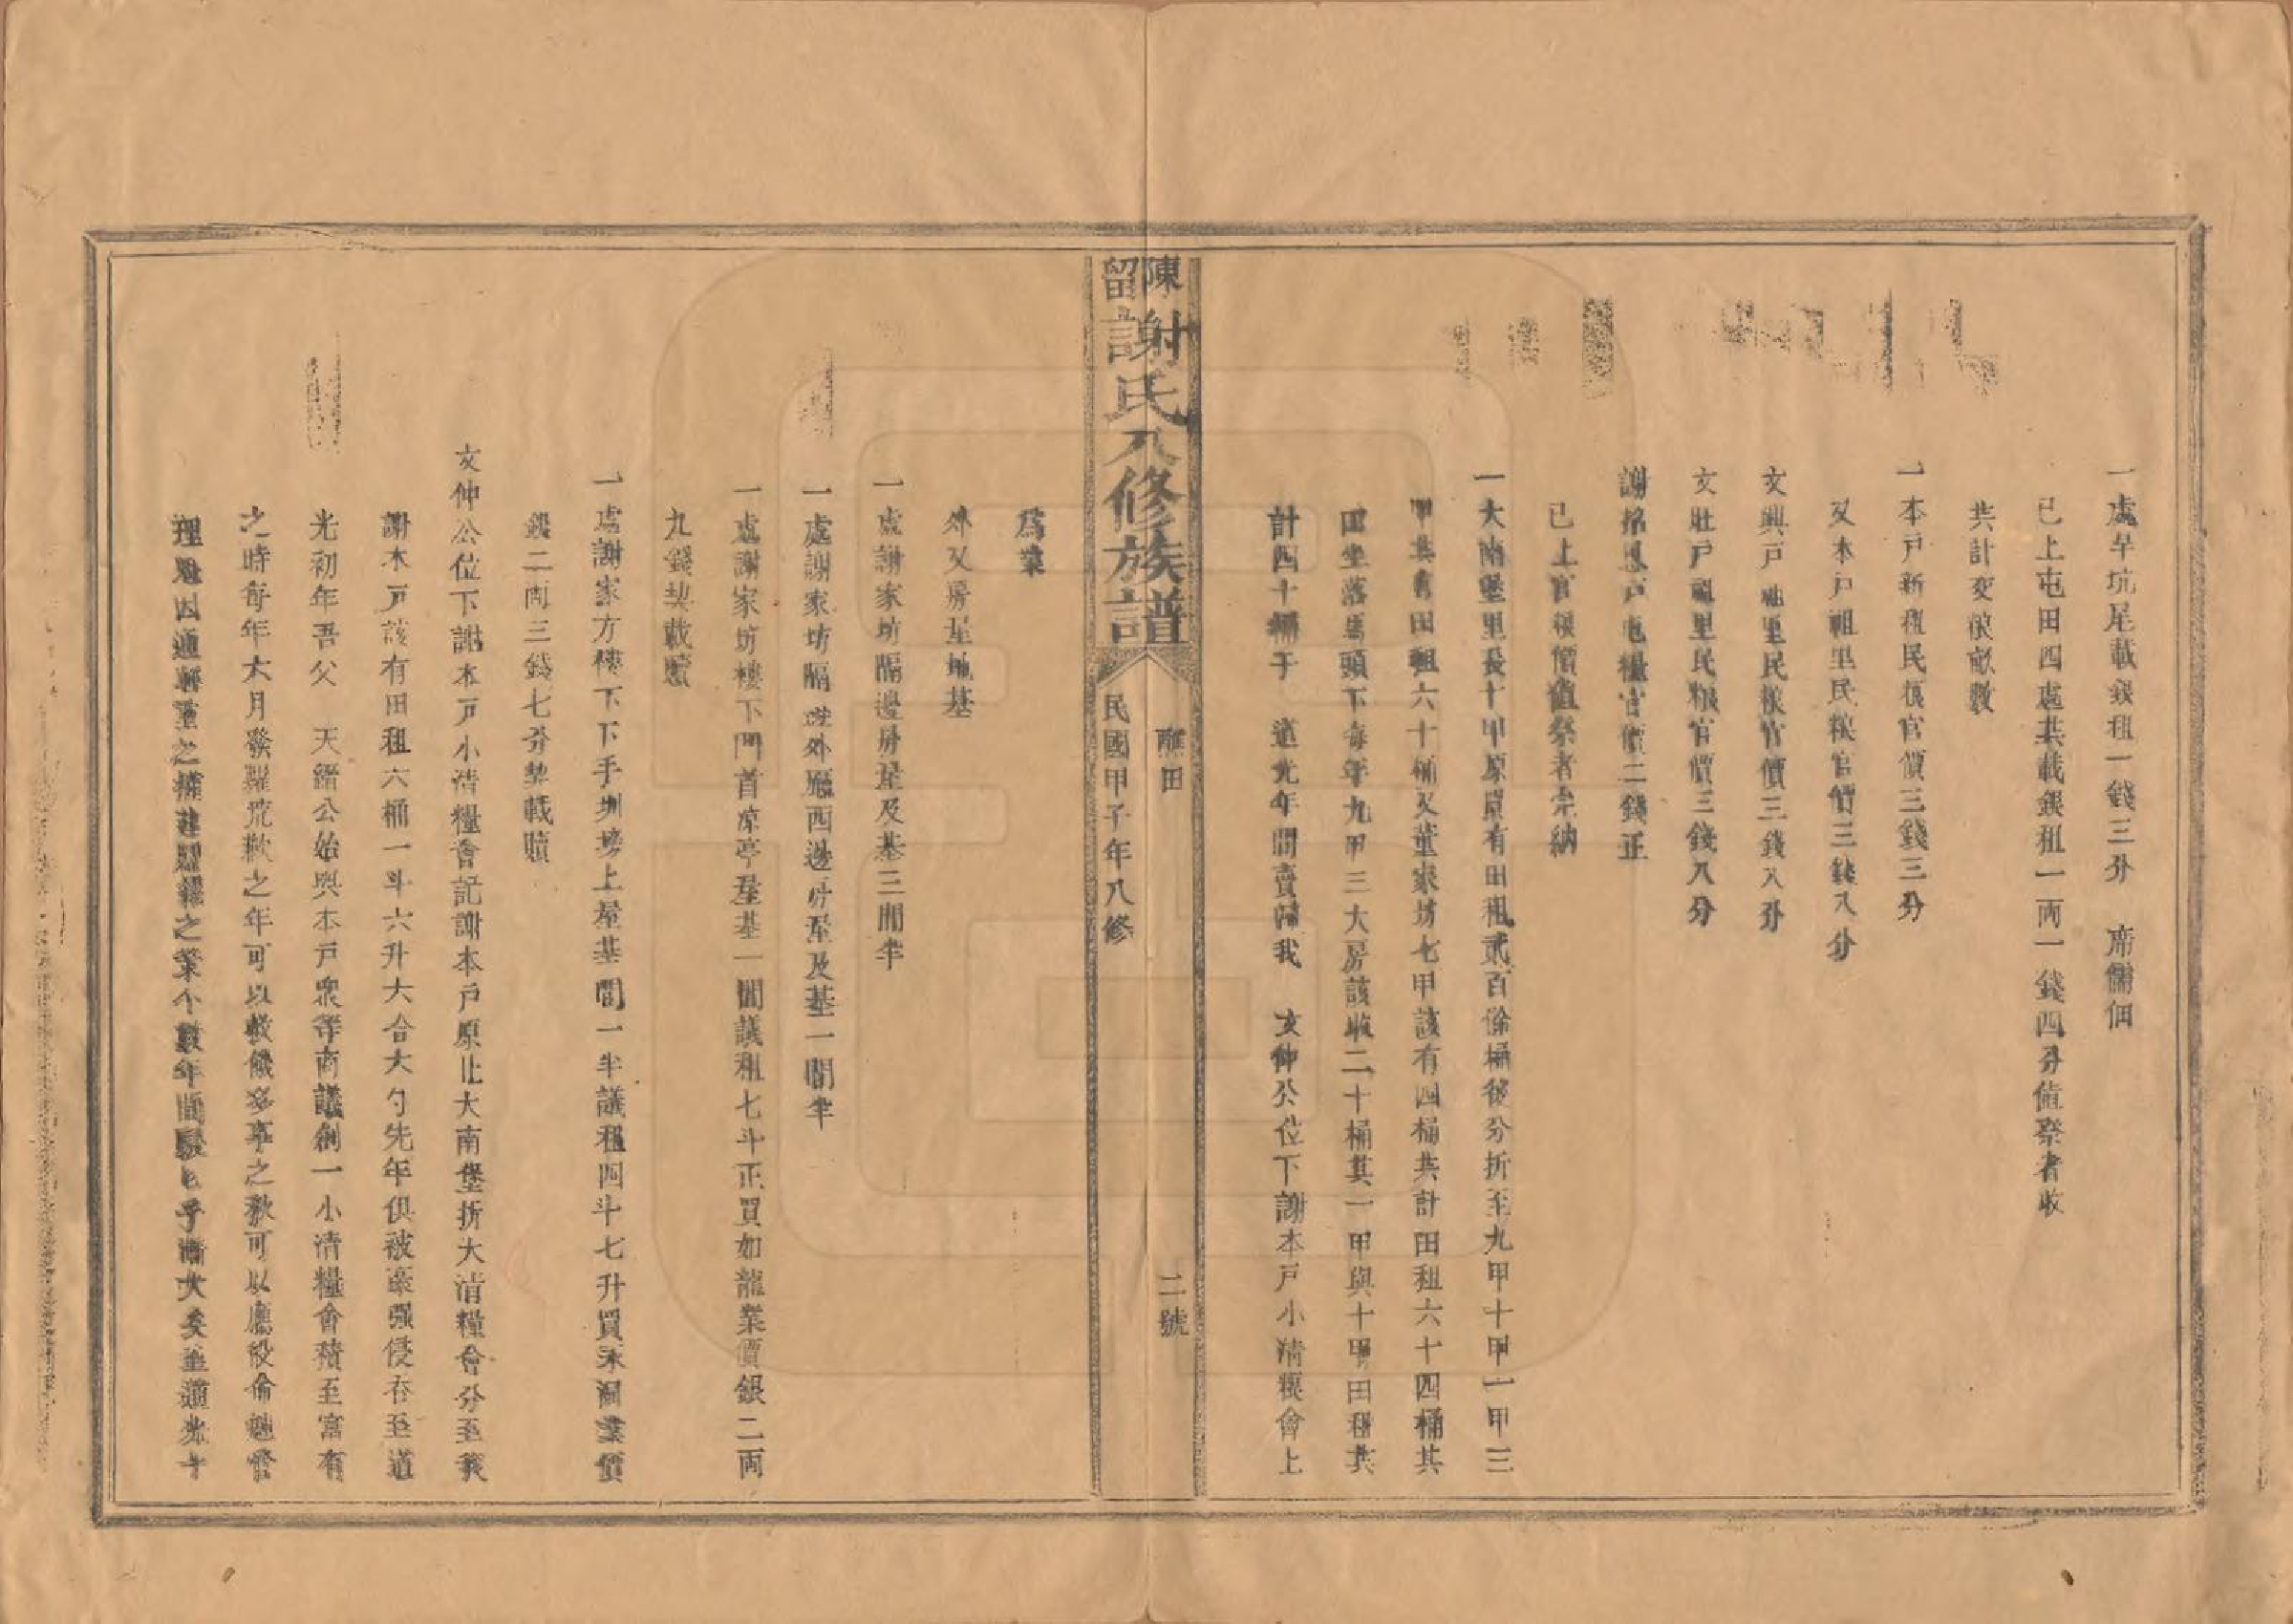 一處羊坑尾載銀租一錢三分　席儒佃
已上屯田四處共載銀租一兩一錢四分值祭者收
共計夌粮畝數
一本戶新租民粮官價三錢三分
又本戶祖里民粮官價三錢八分
文興戶祖里民粮官價三錢八分
文壯戶祖里民粮官價三錢八分
謝招恩戶屯糧官價二錢正
已上官粮價值祭者完納
一大南堡里長十甲原買有田租貳百餘桶後分折至九甲十甲一甲三
甲共有田租六十桶又董家坊七甲該有四桶共計田租六十四桶其
田坐落馬頭下每年九甲三大房該收二十桶其一甲與十甲田租共
計四十桶于　道光年間賣歸我　文仲公位下謝本戶小清粮會上
陳留謝氏八修族譜
醮田
二號
民國甲子年八修
為業
外又房屋地基
一處謝家坊隔邊房屋及基三間半
一處謝家坊隔邊外廳西邊房屋及基一間半
一處謝家坊樓下門首凉亭屋基一間議租七斗正買如龍業價銀二兩
九錢契載贖
一處謝家方樓下下手圳塝上屋基間一半議租四斗七升買永國業價
銀二兩三錢七分契載贖
文仲公位下謝本戶小清糧會記謝本戶原止大南堡折大清糧會分至我
謝本戶該有田租六桶一斗六升大合大勺先年俱被豪强侵吞至道
光初年吾父　天縉公始與本戶衆等商議創一小清糧會積至富有
之時每年大月發糶荒歉之年可以救饑多事之秋可以應役命魁督
理魁因通輕重之權建置之業不數年間駸乎漸大矣至道光十